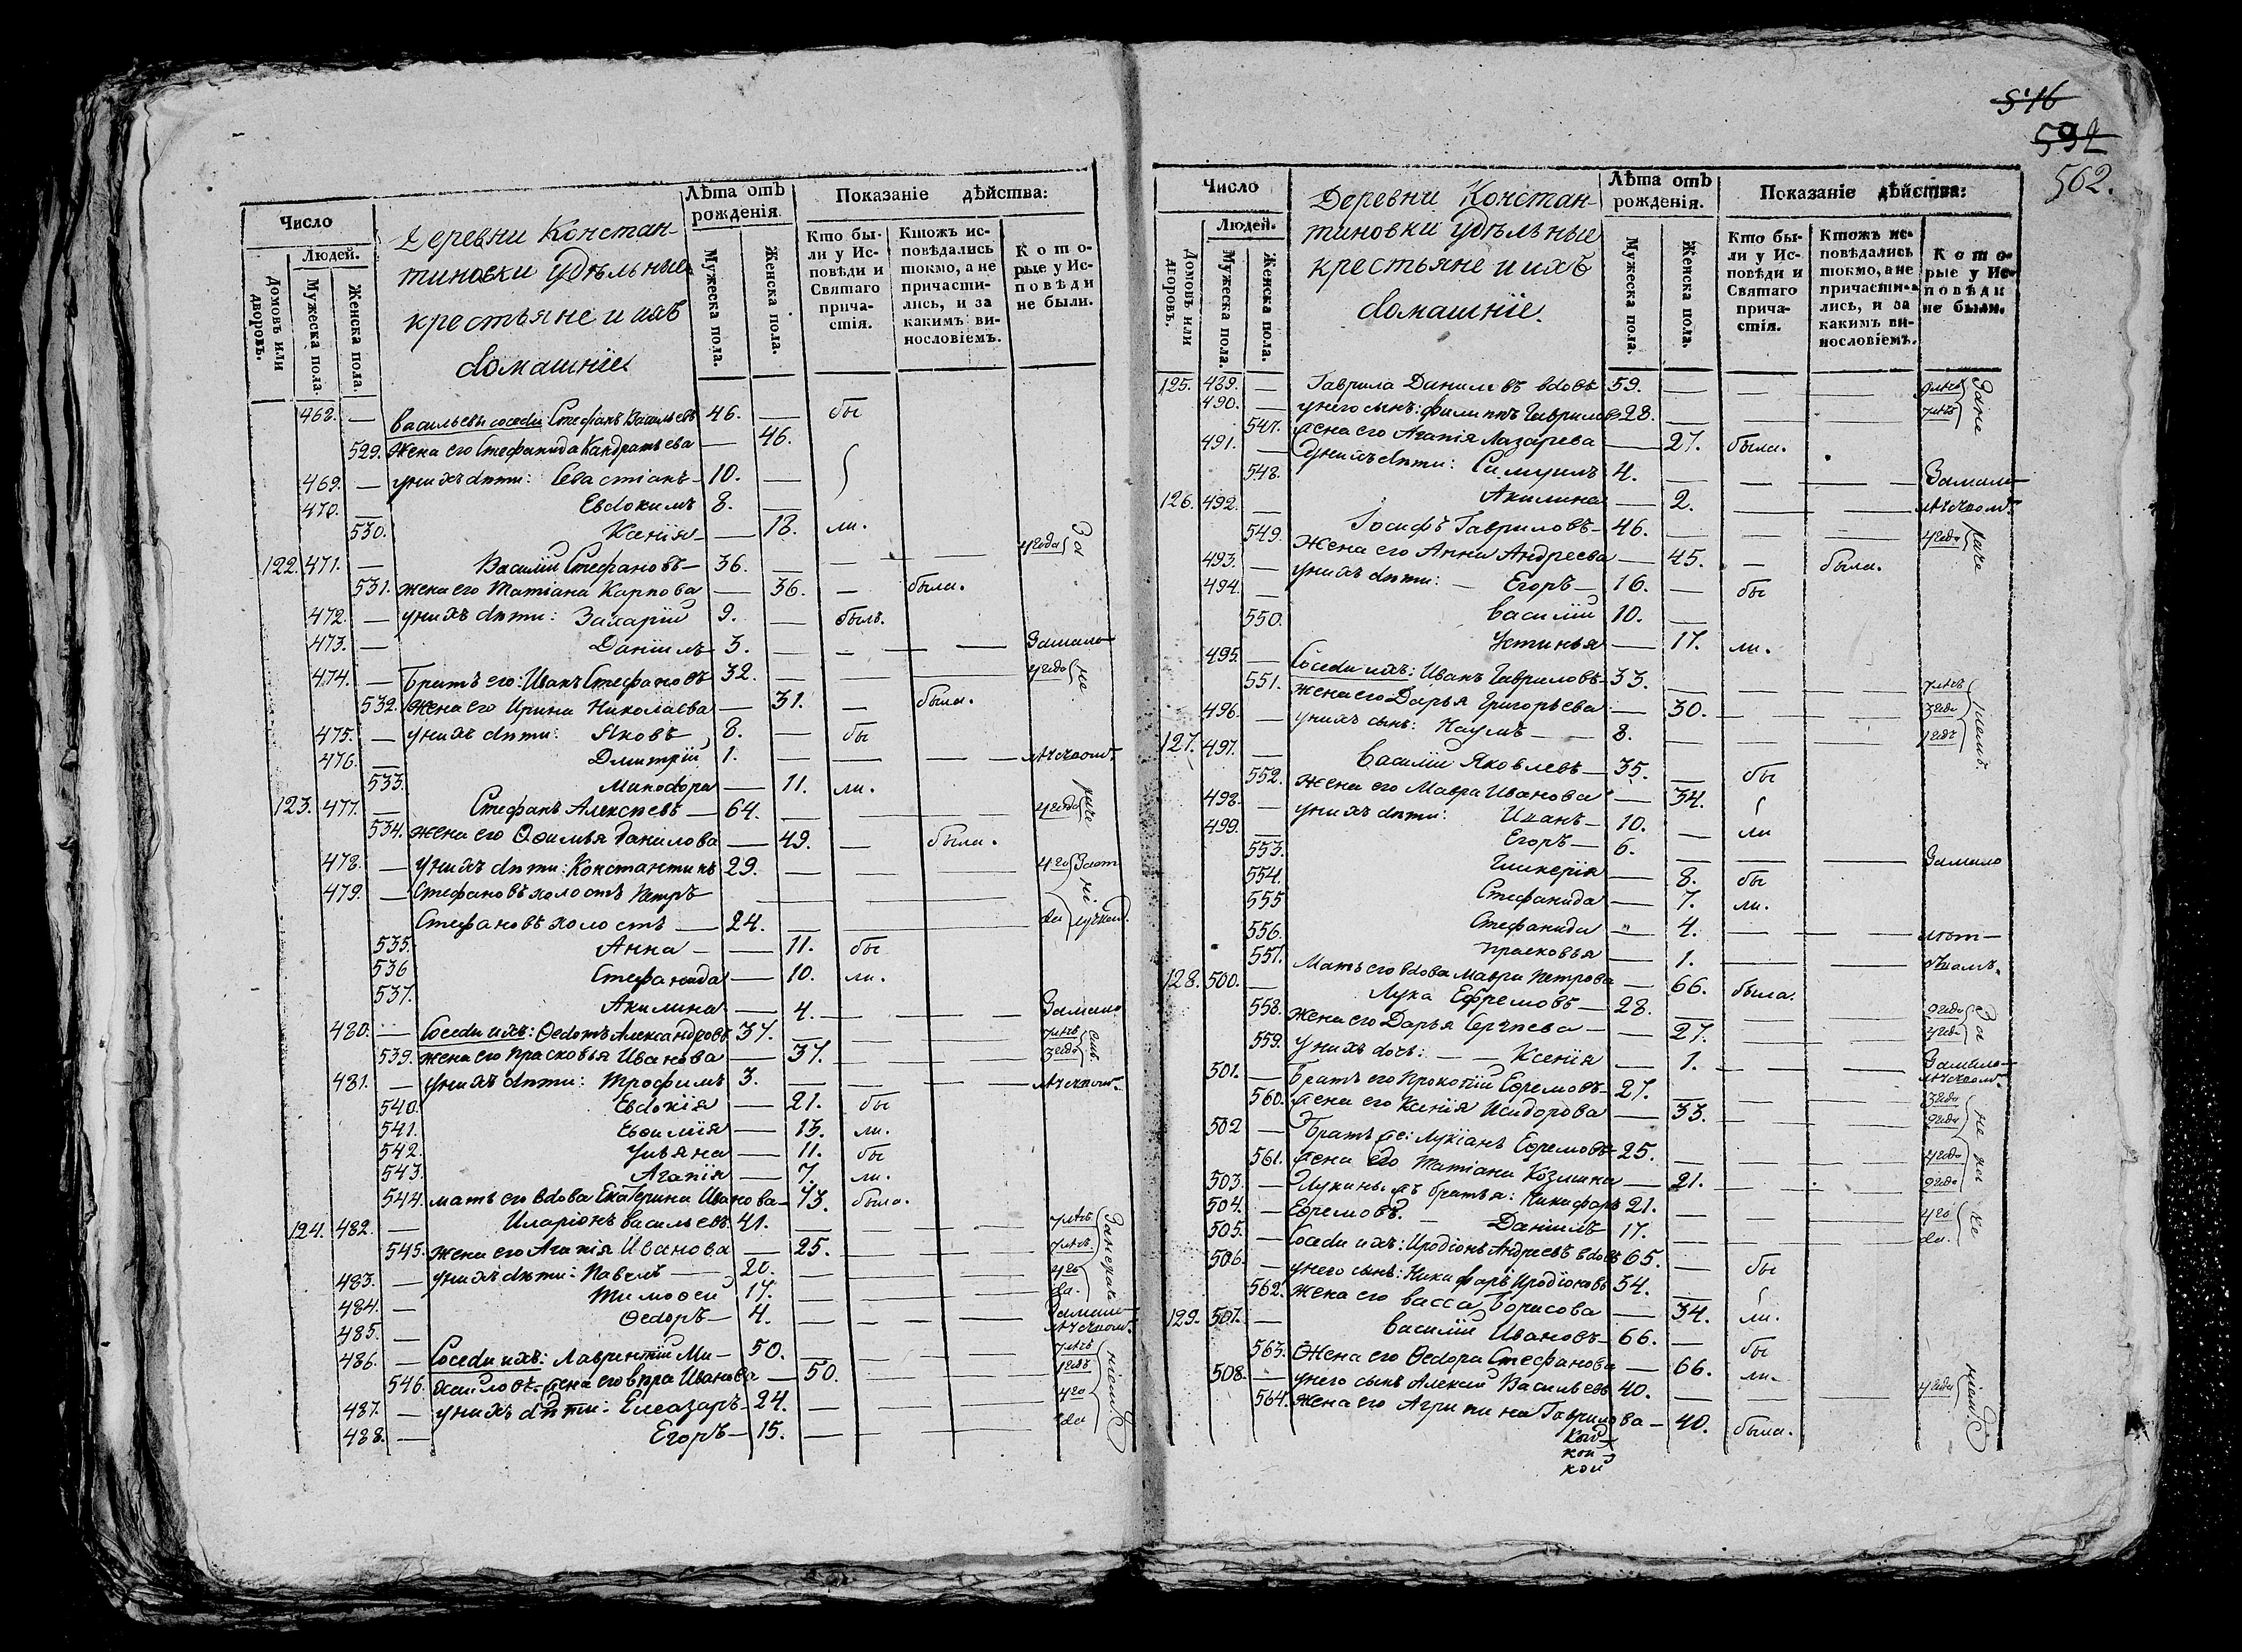 Число
Людей.
Домовъ или дворовъ.
Мужеска пола.
Женска пола.
Деревни Констан-
тиновки удѣльные
крестьяне и ихъ
домашніе
Лѣта отъ рожденія.
Мужеска пола.
Женска пола.
Показаніе дѣйства:
Кто бы-
ли у Ис-
повѣди и
Святаго
прича-
стія.
Ктожъ ис-
повѣдались
токмо, а не
причасти-
лись, и за
какимъ ви-
нословіемъ.
Кото-
рые у Ис-
повѣди
не были.
468. — Васильевы соседи: Стефанъ Васильевъ 46. — бы
529. Жена его Стефанида Кандратьева — 46.
469. — у нихъ дѣти: Севастіанъ — 10. —
470. — Евдокимъ 8. —
530. Ксенія — 18. ли.
122. 471. — Василій Стефановъ — 36. — — — 4 года За
531. жена его Татіана Карпова — 36. — была.
472. — у нихъ дѣти: Захарій 9. — былъ.
473. — Даніилъ 3. — — — Замало
474. — Братъ его: Иванъ Стефановъ 32. — — — 4 года не
532. Жена его Ирина Николаева — 31. — была.
475. — у нихъ дѣти: Яковъ 8. — бы
476. — Дмитрій 1. — — — лѣтством.
533. Минодора — 11. ли.
123. 477. — Стефанъ Алексѣевъ — 64. — — — 4 года раче
534. Жена его Ѳѳимья Данилова — 49. — была.
478. — у нихъ дѣти: Константинъ 29. — — — 4 го
479. — Стефановъ холостъ Петръ
Стефановъ холостъ — 24. — — — да
535. Анна — 11. бы
536 Стефанида — 10. ли.
537. Акилина — 4. — — — Замало
480. — Соседи ихъ: Ѳедотъ Александровъ 37. — — — 7 лѣтъ
539. жена его Прасковья Иванова — 37. — — — 3 года
481. — у нихъ дѣти: Трофимъ 3. — — — лѣтством.
540. Евдокія — 21. бы
541. Евѳимія — 15. ли.
542. Ульяна — 11. бы
543. Агапія — 7. ли.
544. мать его вдова Екатерина Иванова — 73. была.
124. 482. — Иларіонъ Васильевъ 41. — — — 7 лѣтъ
545. жена его Агапія Иванова — 25. — — — 7 лѣтъ
483. — у нихъ дѣти: Павелъ — 20. — — — 4 го
484. — Тимоѳей 17. — — — да.
485. — Ѳедоръ — 4. — — — Замало лѣтством.
486. — Соседи ихъ: Лаврентій Ми- 50. — — — 7 лѣтъ
546. хайловъ жена его Вѣра Иванова — 50. — — — 1 годъ
487. — у нихъ дѣти: Елеазаръ — 24. — — — 4 го
488. — Егоръ — 15. — — — да
нiемъ
516
592
562.
Число
Людей.
Домовъ или дворовъ.
Мужеска пола.
Женска пола.
Деревни Констан-
тиновки удѣльные
крестьяне и ихъ
домашніе.
Лѣта отъ рожденія.
Мужеска пола.
Женска пола.
Показаніе дѣйства:
Кто бы-
ли у Ис-
повѣди и
Святаго
прича-
стія.
Ктожъ ис-
повѣдались
токмо, а не
причасти-
лись, и за
какимъ ви-
нословіемъ.
Кото-
рые у Ис-
повѣди
не были.
125. 489. — Гаврила Даниловъ вдовъ 59. — — — Зане
490. — у него сынъ: Филиппъ Гавриловъ 28. — — — 7 лѣтъ
547. жена его Агапія Лазарева — 27. была.
491. — у нихъ дѣти: Самуилъ 4. — — — Замало
548. Акилина — 2. — — — лѣтством.
126. 492. — Іосифъ Гавриловъ — 46. — — — 4 года раче
549. Жена его Анна Андреева — 45. — была.
493. — у нихъ дѣти: — Егоръ — 16. — бы
494. — Василій 10. —
550. Устинья — 17. ли.
495. — Соседи ихъ: Иванъ Гавриловъ 33. — — — 7 лѣтъ
551. жена его Дарья Григорьева — 30. — — — 3 года
496. — у нихъ сынъ: Наумъ — 8. — — — 1 годъ
нiемъ
127. 497. — Василій Яковлевъ — 35. — бы
552. Жена его Мавра Иванова — 34.
498. — у нихъ дѣти: Иванъ — 10. — ли
499. — Егоръ — 6. — — — Замало
553. Гликерія — 8. бы
554. Стефанида — 7. ли.
555 Стефанида „ 4. — — — лѣт-
556. Прасковья — 1. — — —
557. Мать его вдова Мавра Петрова — 66. была.
128. 500. — Лука Ефремовъ — 28. — — — 9 года За
558. Жена его Дарья Сергѣева — 27. — — — 4 года
559. у нихъ дочь: — Ксенія — 1. — — — Замало лѣтством.
501. — Братъ его Прокопій Ефремовъ — 27. — — — 3 года не
560. Жена его Ксенія Исидорова — 33. — — — 9 года
502 — Братъ же: Лукіанъ Ефремовъ 25. — — — 4 года
561. Жена его Татіана Козмина — 21. — — — 9 года
503. — Лукины же братья: Никифоръ 21. — — — 4 го
504. — Ефремовъ. — Даніилъ 17. — — — да.
505. — Соседи ихъ: Иродіонъ Андреевъ вдовъ 65. — бы
506. — у него сынъ: Никифоръ Иродіоновъ 34. —
562. Жена его Васса Борисова — 34. ли.
129. 507. — Василій Ивановъ — 66. — бы
563. Жена его Ѳедора Стефанова — 66. ли.
508. — у него сынъ Алексій Васильевъ 40. — — — 4 года нiемъ
564. Жена его Агрипина Гаврилова — 40. была.